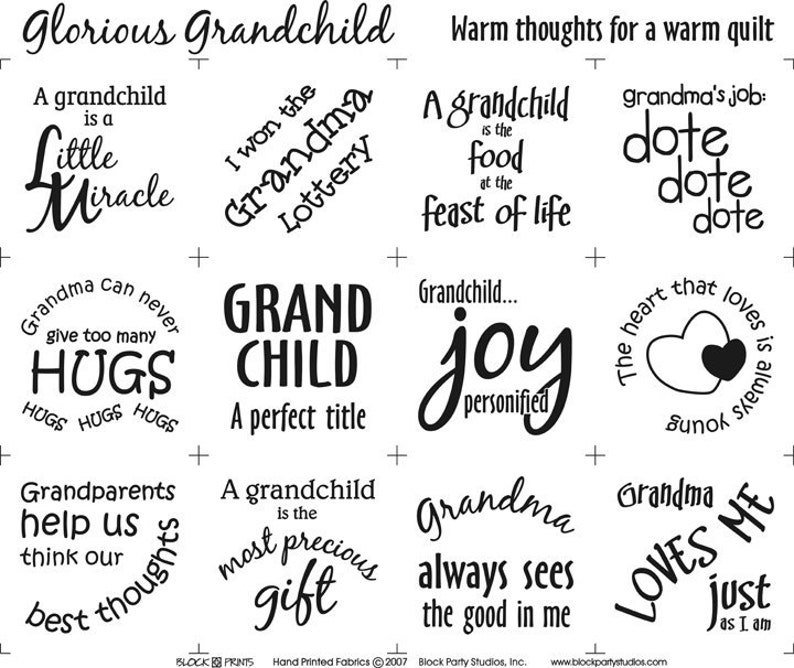 Glorious Grandchild
Warm thoughts for a warm quilt
A grandchild
is a
Little
Miracle
I won the
Grandma
Lottery
A grandchild
is the
food
at the
feast of life
grandma's job:
dote
dote
dote
Grandma Can never
give too many
HUGS
HUGS HUGS HUGS
GRAND
CHILD
A perfect title
Grandchild...
joy
personified
The heart that loves is always young
Grandparents
help us
think our
best thoughts
A grandchild
is the
most precious
gift
Grandma
always sees
the good in me
Grandma
LOVES ME
just
as I am
BLOCK PRINTS Hand Printed Fabrics © 2007 Block Party Studios, Inc. www.blockpartystudios.com